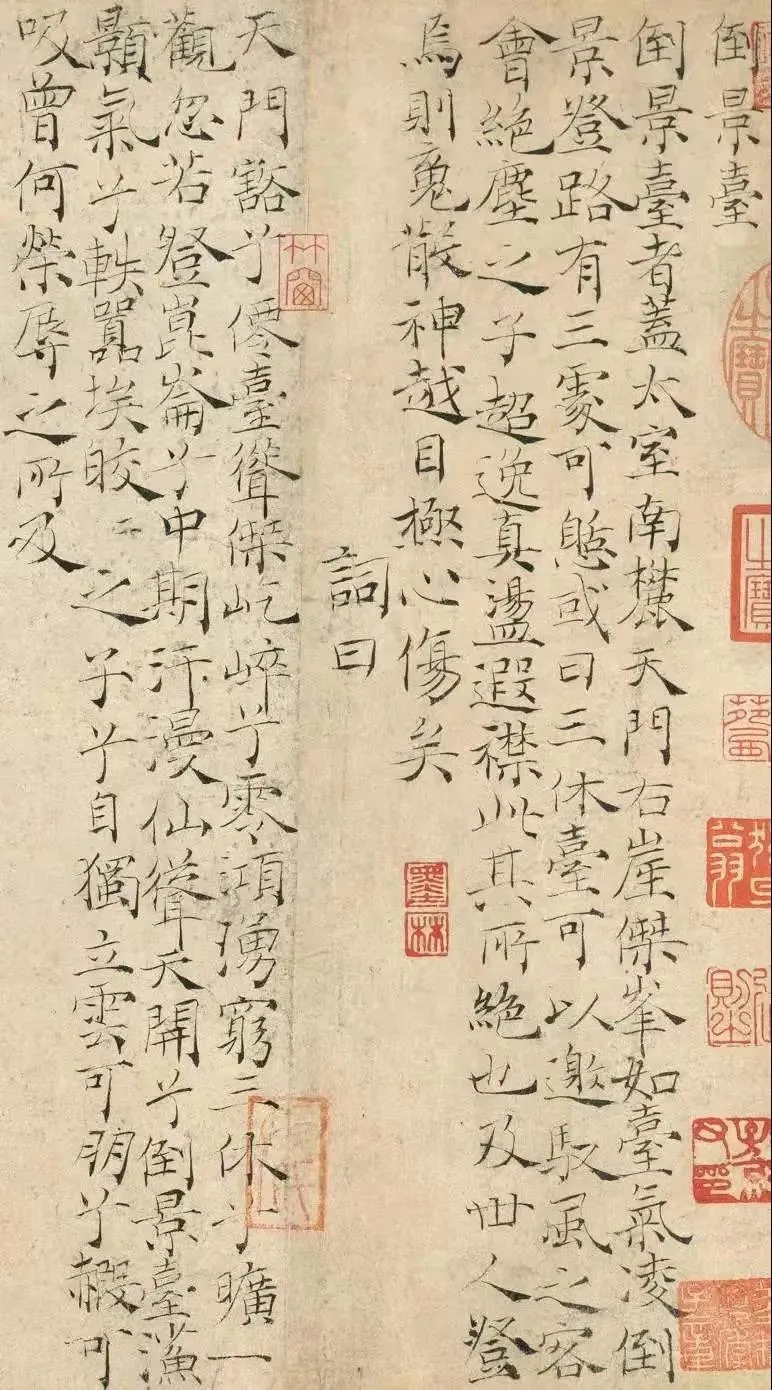 倒景臺
倒景臺者蓋太室南麓天門右崖傑峯如臺氣凌倒
景登路有三處可憩或曰三休臺可以邀馭風之客
會絕塵之子超逸真盪遐襟此其所絕也及世人登
焉則魂散神越目極心傷矣
墨林
詞曰
天門豁兮僊臺聳傑屹崒兮零澒湧窮三休兮曠一
竹窗
觀忽若登崑崙兮中期汗漫仙聳天開兮倒景臺
顥氣兮軼囂埃皎〻之子兮自獨立雲可朋兮赮可
吸曾何榮辱之所及